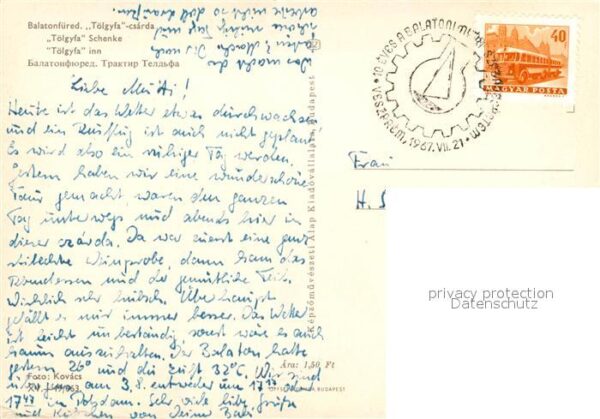 Balatonfüred. „Tölgyfa”-csárda
„Tölgyfa” Schenke
"Tölgyfa" inn
Балатонфюред. Трактир Телдьфа
Liebe Mutti!
Heute ist das Wetter etwas durchwachsen
und ein Ausflug ist auch nicht geplant.
Es wird also ein ruhiger Tag werden.
Gestern haben wir eine wunderschöne
Tour gemacht, waren den ganzen
Tag unterwegs und abends hier in
dieser czárda. Da war zuerst eine ganz
Weinprobe, dann kam das
Abendessen und der gemütliche Teil.
Wirklich sehr hübsch. Überhaupt
gefällt es mir immer besser. Das Wetter
ist leicht unbeständig, sonst wäre es auch
kaum auszuhalten. Der Balaton hatte
gestern 26° und die Luft 32°C. Wir sind
übrigens am 3.8. entweder um 17
17 47 in Potsdam. Sehr viele liebe Grüße
und Küßchen von Deiner
Foto: Kovács
Ára: 1,50 Ft
BUDAPEST
Képzőművészeti Alap Kiadóvállalata, Budapest
10 ÉVES A BALATONI
VESZPRÉM, 1967.VII.21
40
MAGYAR POSTA
Frau
H.
privacy protection
Datenschutz